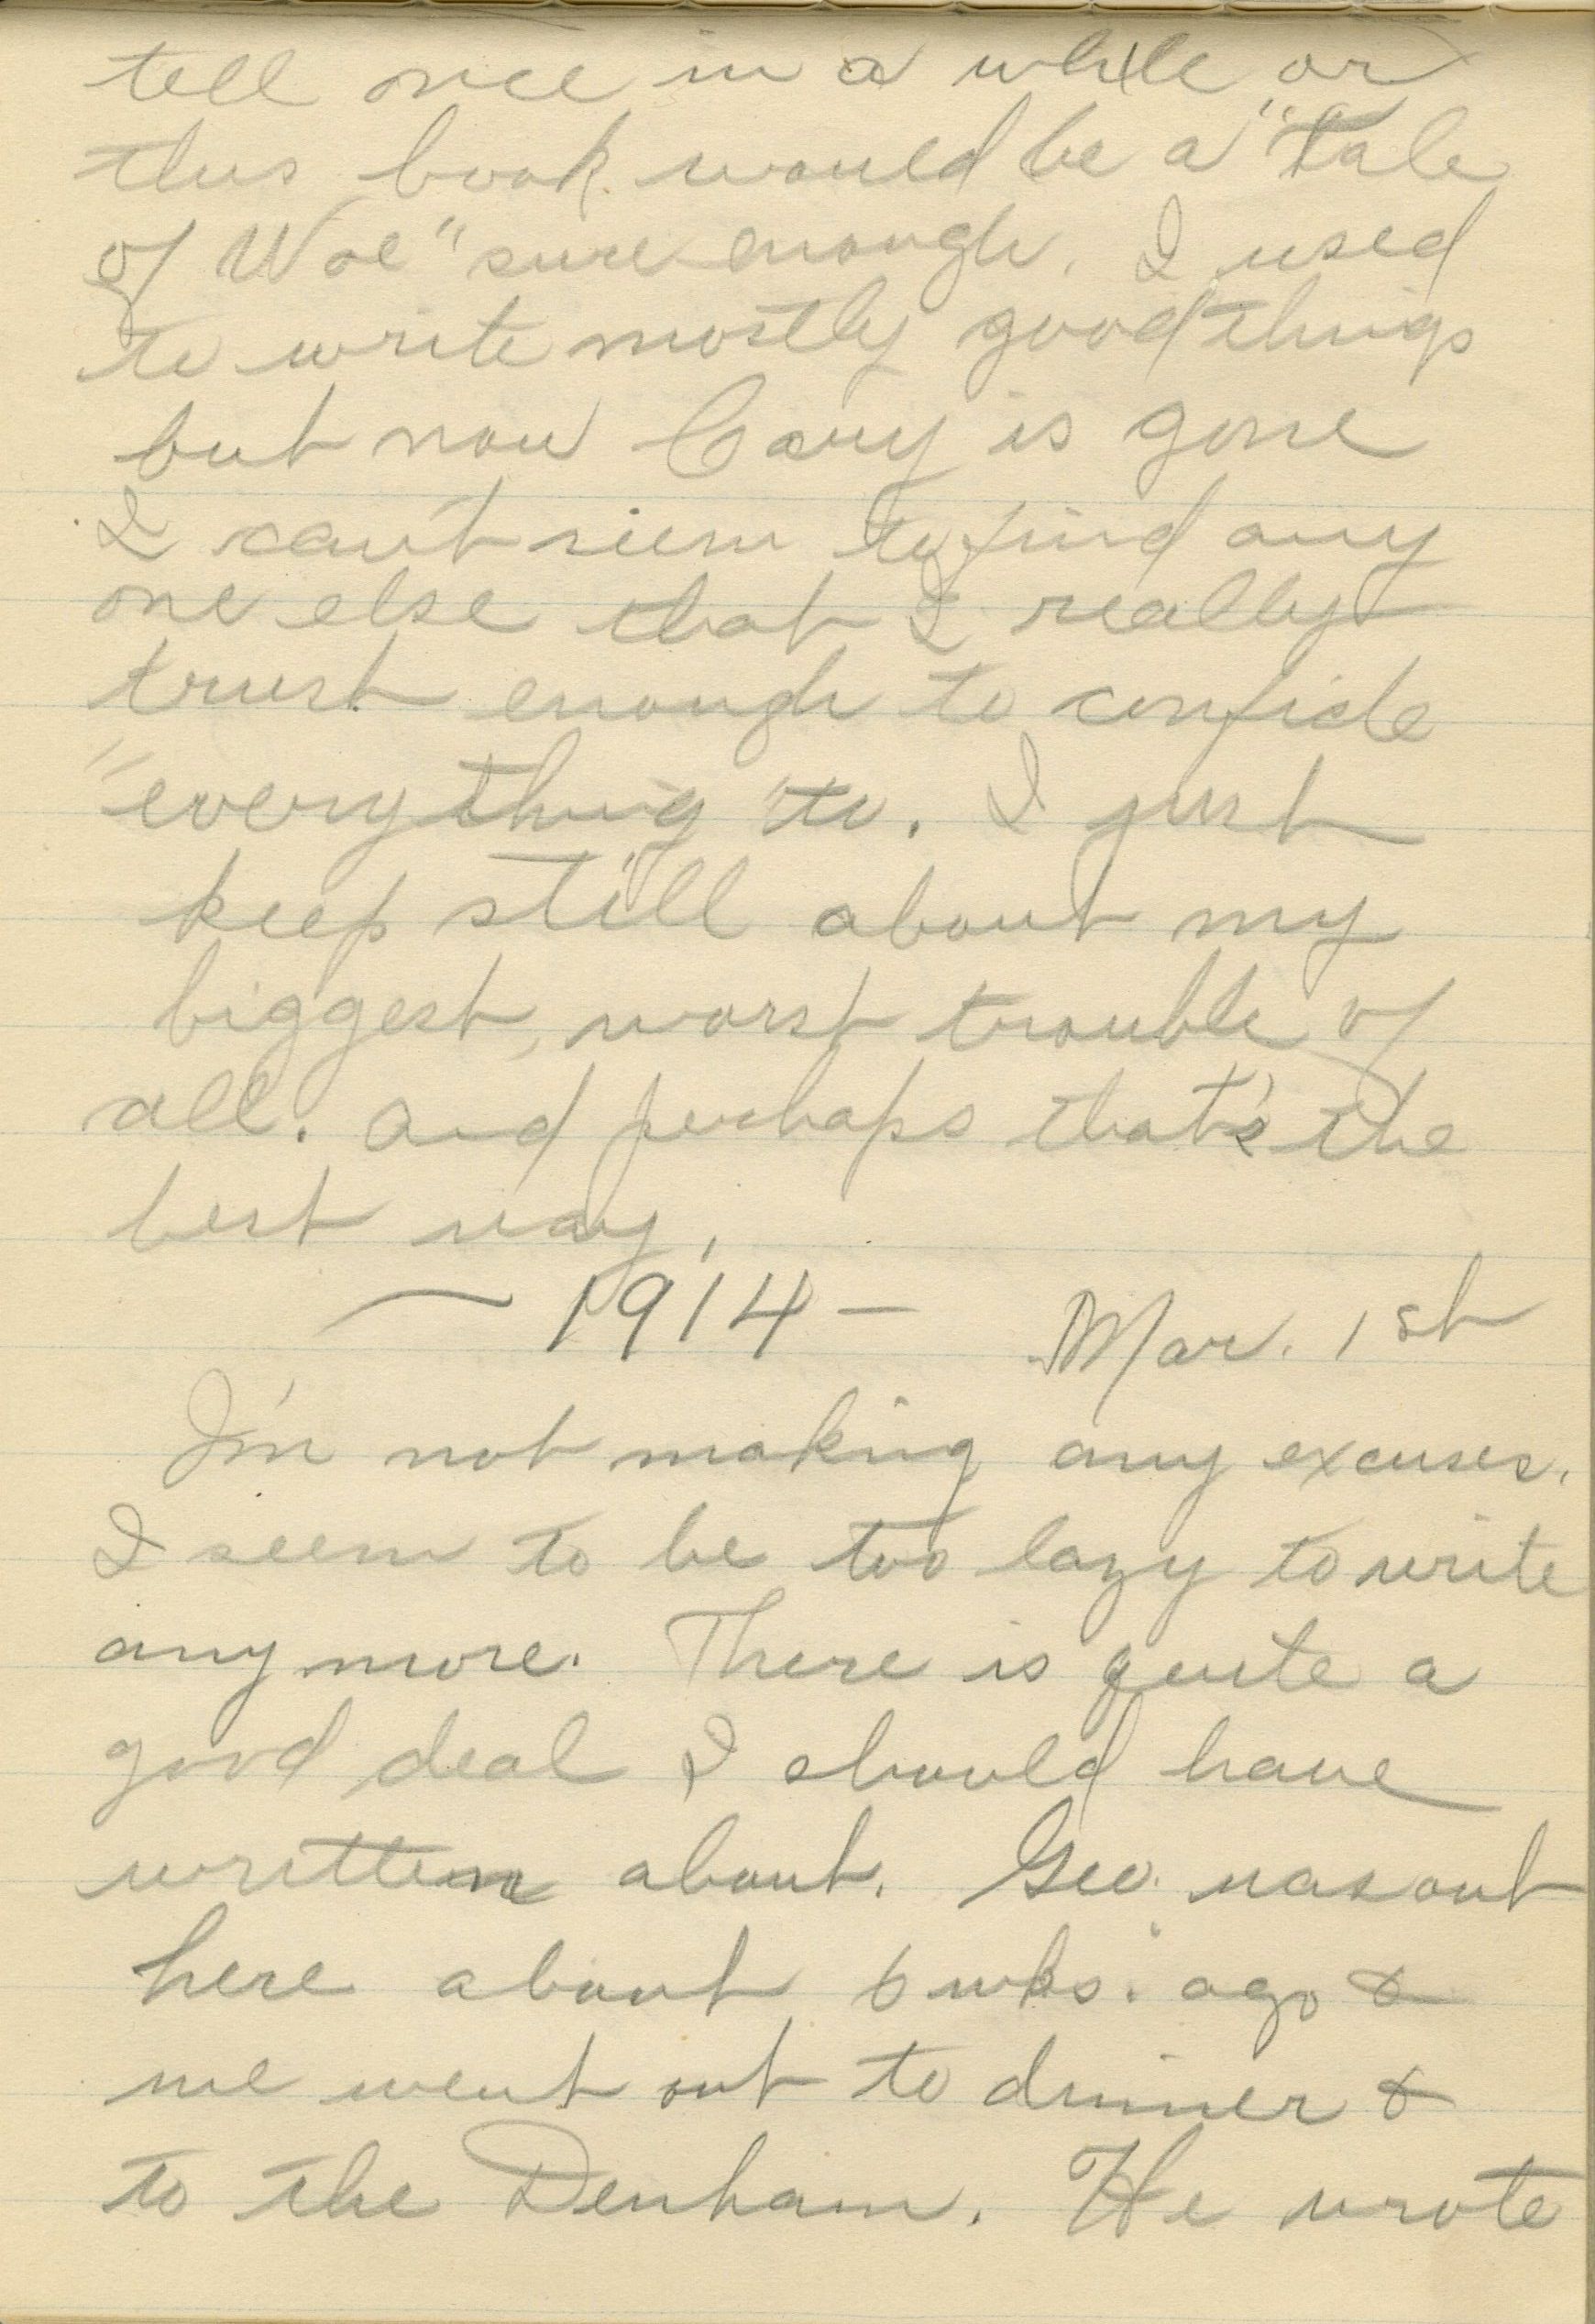 tell once in a while or
this book would be a "Tale
of Woe" sure enough. I used
to write mostly good things
but now Cary is gone
I can't seem to find any
one else that I really
trust enough to confide
"everything" to. I just
keep still about my
biggest, worst trouble of
all. And perhaps that's the
best way.
~ 1914 - Mar. 1st
I'm not making any excuses.
I seem to be too lazy to write
any more. There is quite a
good deal I should have
written about. Geo. was out
here about 6 wks. ago &
we went out to dinner &
to the Denham. He wrote